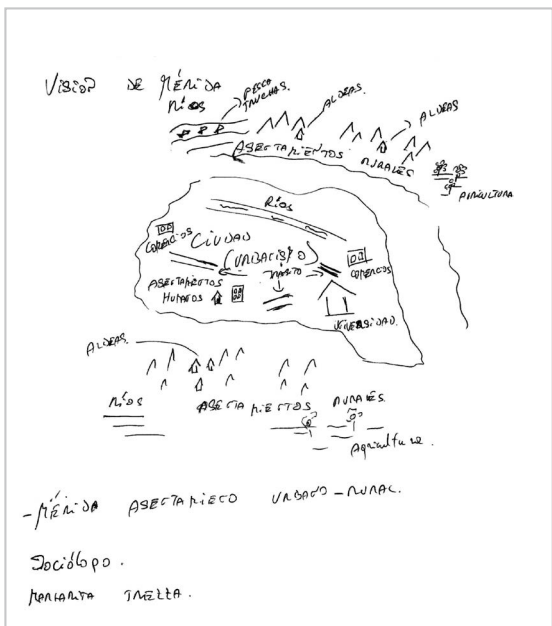 VISION DE MÉRIDA
RÍOS
PESCA
TRUCHAS.
ALDEAS.
ALDEAS
ASENTAMIENTOS RURALES
AGRICULTURA
RÍOS
COMERCIOS CIUDAD
(URBANISMO)
COMERCIOS
ASENTAMIENTOS
HUMANOS
UNIVERSIDAD.
ALDEAS.
RÍOS
ASENTAMIENTOS RURALES.
Agricultura.
- MÉRIDA ASENTAMIENTO URBANO - RURAL.
Sociólogo.
MARGARITA